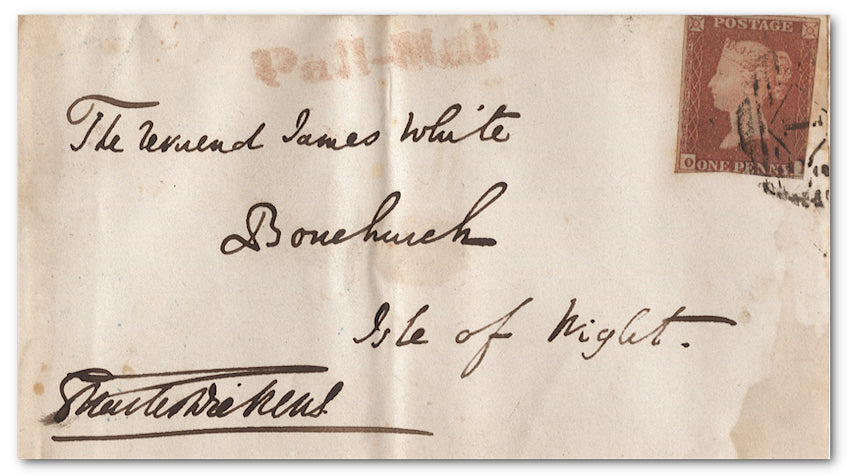 POSTAGE
Pall-Mall
The reverend James White
ONE PENNY
O
Bonchurch
Isle of Wight.
Charles Dickens